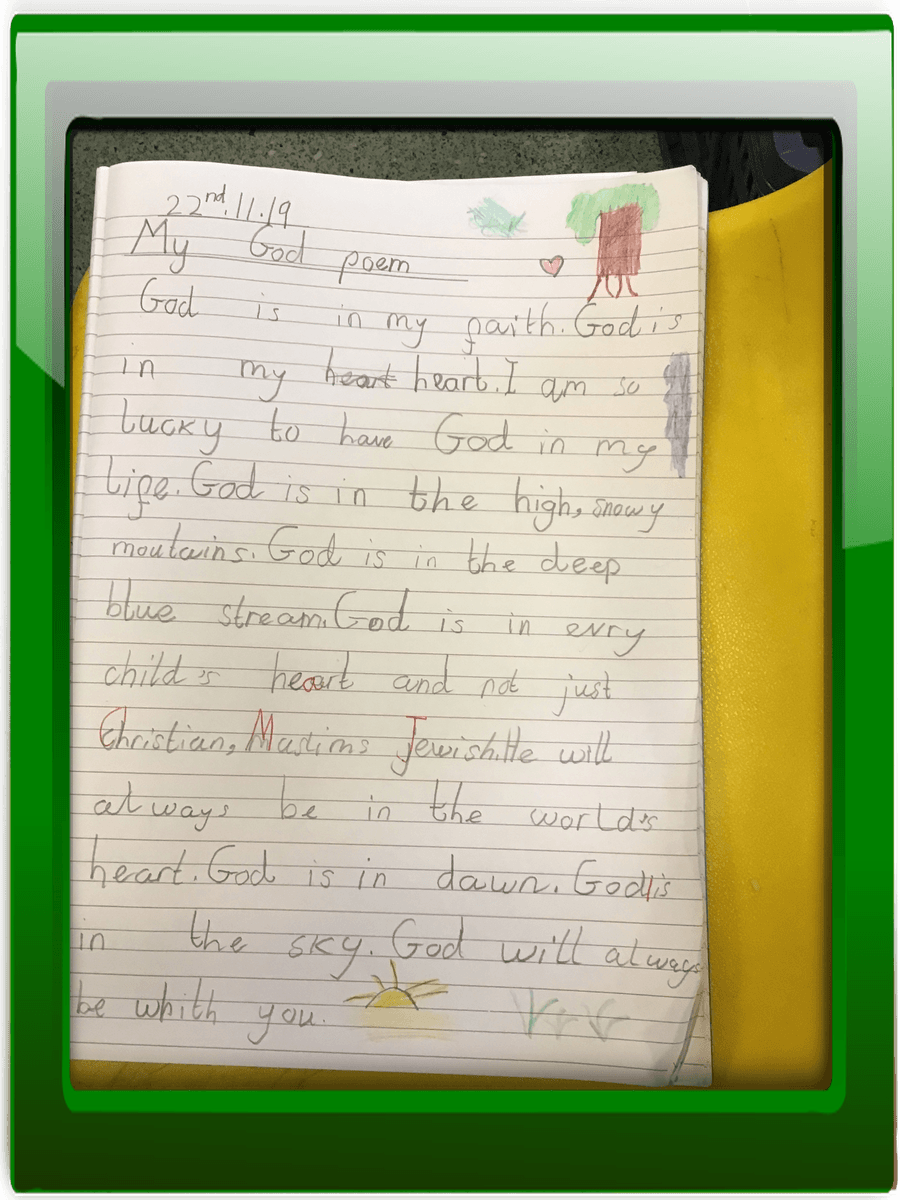 22nd.11.19
My God poem
God is in my faith. God is
in my heart heart. I am so
lucky to have God in my
life. God is in the high, snowy
moutains. God is in the deep
blue stream. God is in evry
child's heart and not just
Christian, Muslims Jewish. He will
always be in the world's
heart. God is in dawn. God is
in the sky. God will always
be whith you.